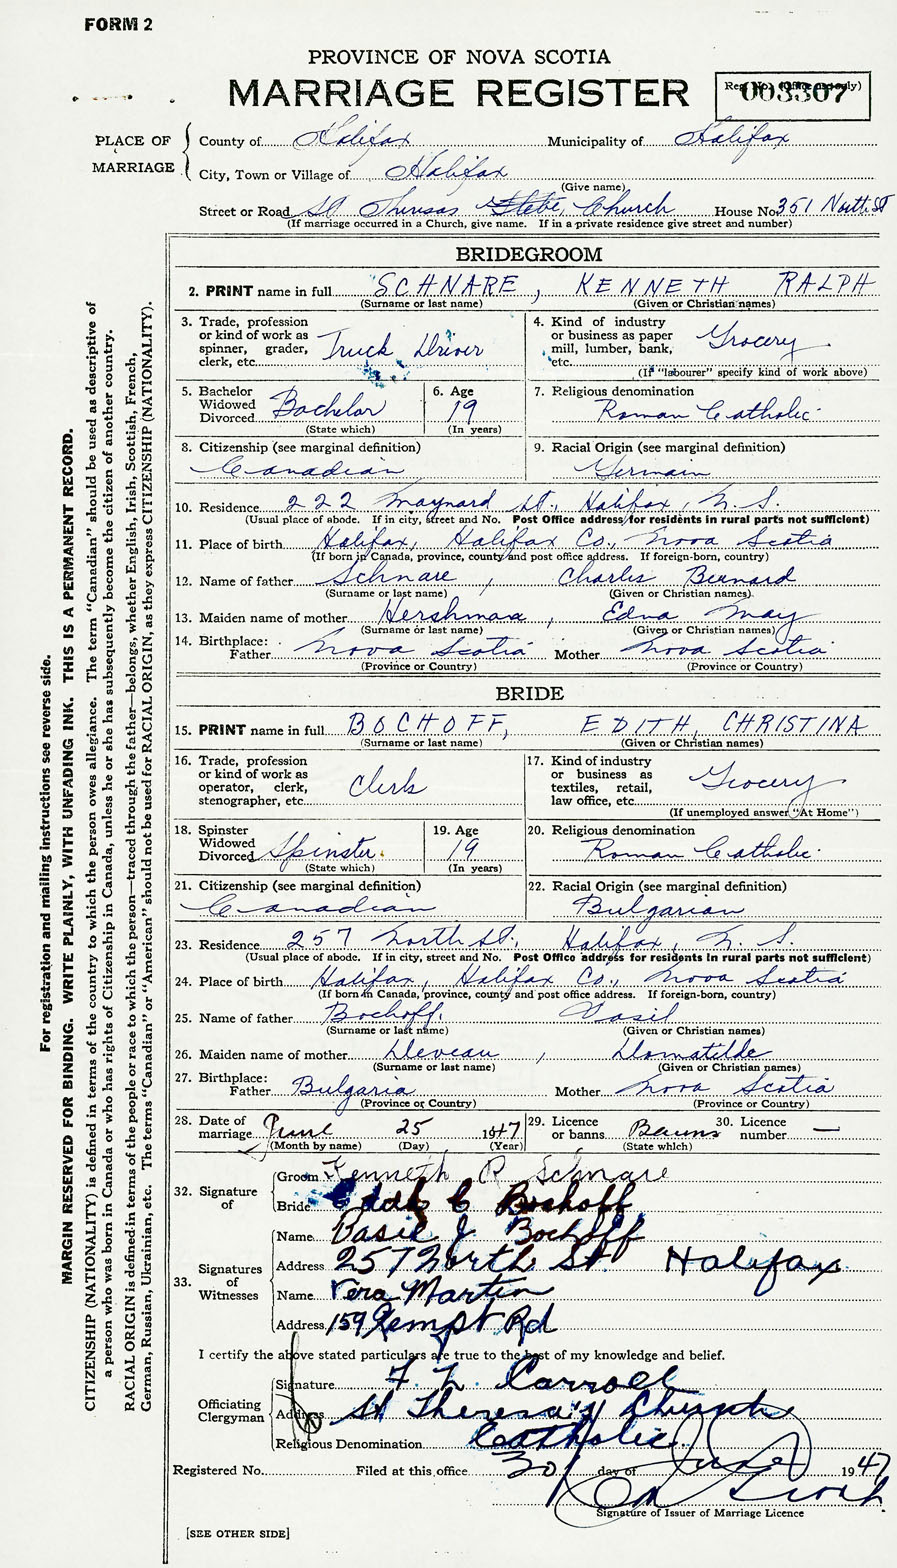 FORM 2
PROVINCE OF NOVA SCOTIA
MARRIAGE REGISTER
003307
PLACE OF MARRIAGE
County of Halifax Municipality of Halifax
City, Town or Village of Halifax
(Give name)
Street or Road St Theresas Glebe, Church House No. 351 North St
(If marriage occurred in a Church, give name. If in a private residence give street and number)
BRIDEGROOM
2. PRINT name in full SCHNARE, KENNETH RALPH
(Surname or last name) (Given or Christian names)
3. Trade, profession or kind of work as spinner, grader, clerk, etc. Truck Driver
4. Kind of industry or business as paper mill, lumber, bank, etc. Grocery
(If "labourer" specify kind of work above)
5. Bachelor Widowed Divorced Bachelor
(State which)
6. Age 19
(In years)
7. Religious denomination
Roman Catholic
8. Citizenship (see marginal definition)
Canadian
9. Racial Origin (see marginal definition)
Germain
10. Residence 222 Maynard St., Halifax, N. S.
(Usual place of abode. If in city, street and No. Post Office address for residents in rural parts not sufficient)
11. Place of birth Halifax, Halifax Co., Nova Scotia
(If born in Canada, province, county and post office address. If foreign-born, country)
12. Name of father Schnare, Charles Bernard
(Surname or last name) (Given or Christian names)
13. Maiden name of mother Edna May
(Surname or last name) (Given or Christian names)
14. Birthplace:
Father Nova Scotia Mother Nova Scotia
(Province or Country) (Province or Country)
BRIDE
15. PRINT name in full BOCHOFF, EDITH, CHRISTINA
(Surname or last name) (Given or Christian names)
16. Trade, profession or kind of work as operator, clerk, stenographer, etc. Clerk
17. Kind of industry or business as textiles, retail, law office, etc. Grocery
(If unemployed answer "At Home")
18. Spinster Widowed Divorced Spinster
(State which)
19. Age 19
(In years)
20. Religious denomination
Roman Catholic
21. Citizenship (see marginal definition)
Canadian
22. Racial Origin (see marginal definition)
Bulgarian
23. Residence 257 North St., Halifax, N. S.
(Usual place of abode. If in city, street and No. Post Office address for residents in rural parts not sufficient)
24. Place of birth Halifax, Halifax Co., Nova Scotia
(If born in Canada, province, county and post office address. If foreign-born, country)
25. Name of father Bochoff, Vasil
(Surname or last name) (Given or Christian names)
26. Maiden name of mother Deveau,
(Surname or last name) (Given or Christian names)
27. Birthplace:
Father Bulgaria Mother Nova Scotia
(Province or Country) (Province or Country)
28. Date of marriage June 25 1947
(Month by name) (Day) (Year)
29. Licence or banns Banns
(State which)
30. Licence number —
32. Signature of
Groom Kenneth R Schnare
Bride Edith C Bochoff
33. Signatures of Witnesses
Name Basil J Bochoff
Address 257 North St Halifax
Name Vera Martin
Address 159 Kempt Rd
I certify the above stated particulars are true to the best of my knowledge and belief.
Officiating Clergyman
Signature Carroll
Address St Theresa's Church
Religious Denomination Catholic
Registered No. Filed at this office 30 day of June 1947
Signature of Issuer of Marriage Licence
[SEE OTHER SIDE]
For registration and mailing instructions see reverse side.
MARGIN RESERVED FOR BINDING. WRITE PLAINLY, WITH UNFADING INK. THIS IS A PERMANENT RECORD.
CITIZENSHIP (NATIONALITY) is defined in terms of the country to which the person owes allegiance. The term "Canadian" should be used as descriptive of
a person who was born in Canada or who has rights of Citizenship in Canada, unless he or she has subsequently become the citizen of another country.
RACIAL ORIGIN is defined in terms of the people or race to which the person—traced through the father—belongs, whether English, Irish, Scottish, French,
German, Russian, Ukrainian, etc. The terms "Canadian" or "American" should not be used for RACIAL ORIGIN, as they express CITIZENSHIP (NATIONALITY).